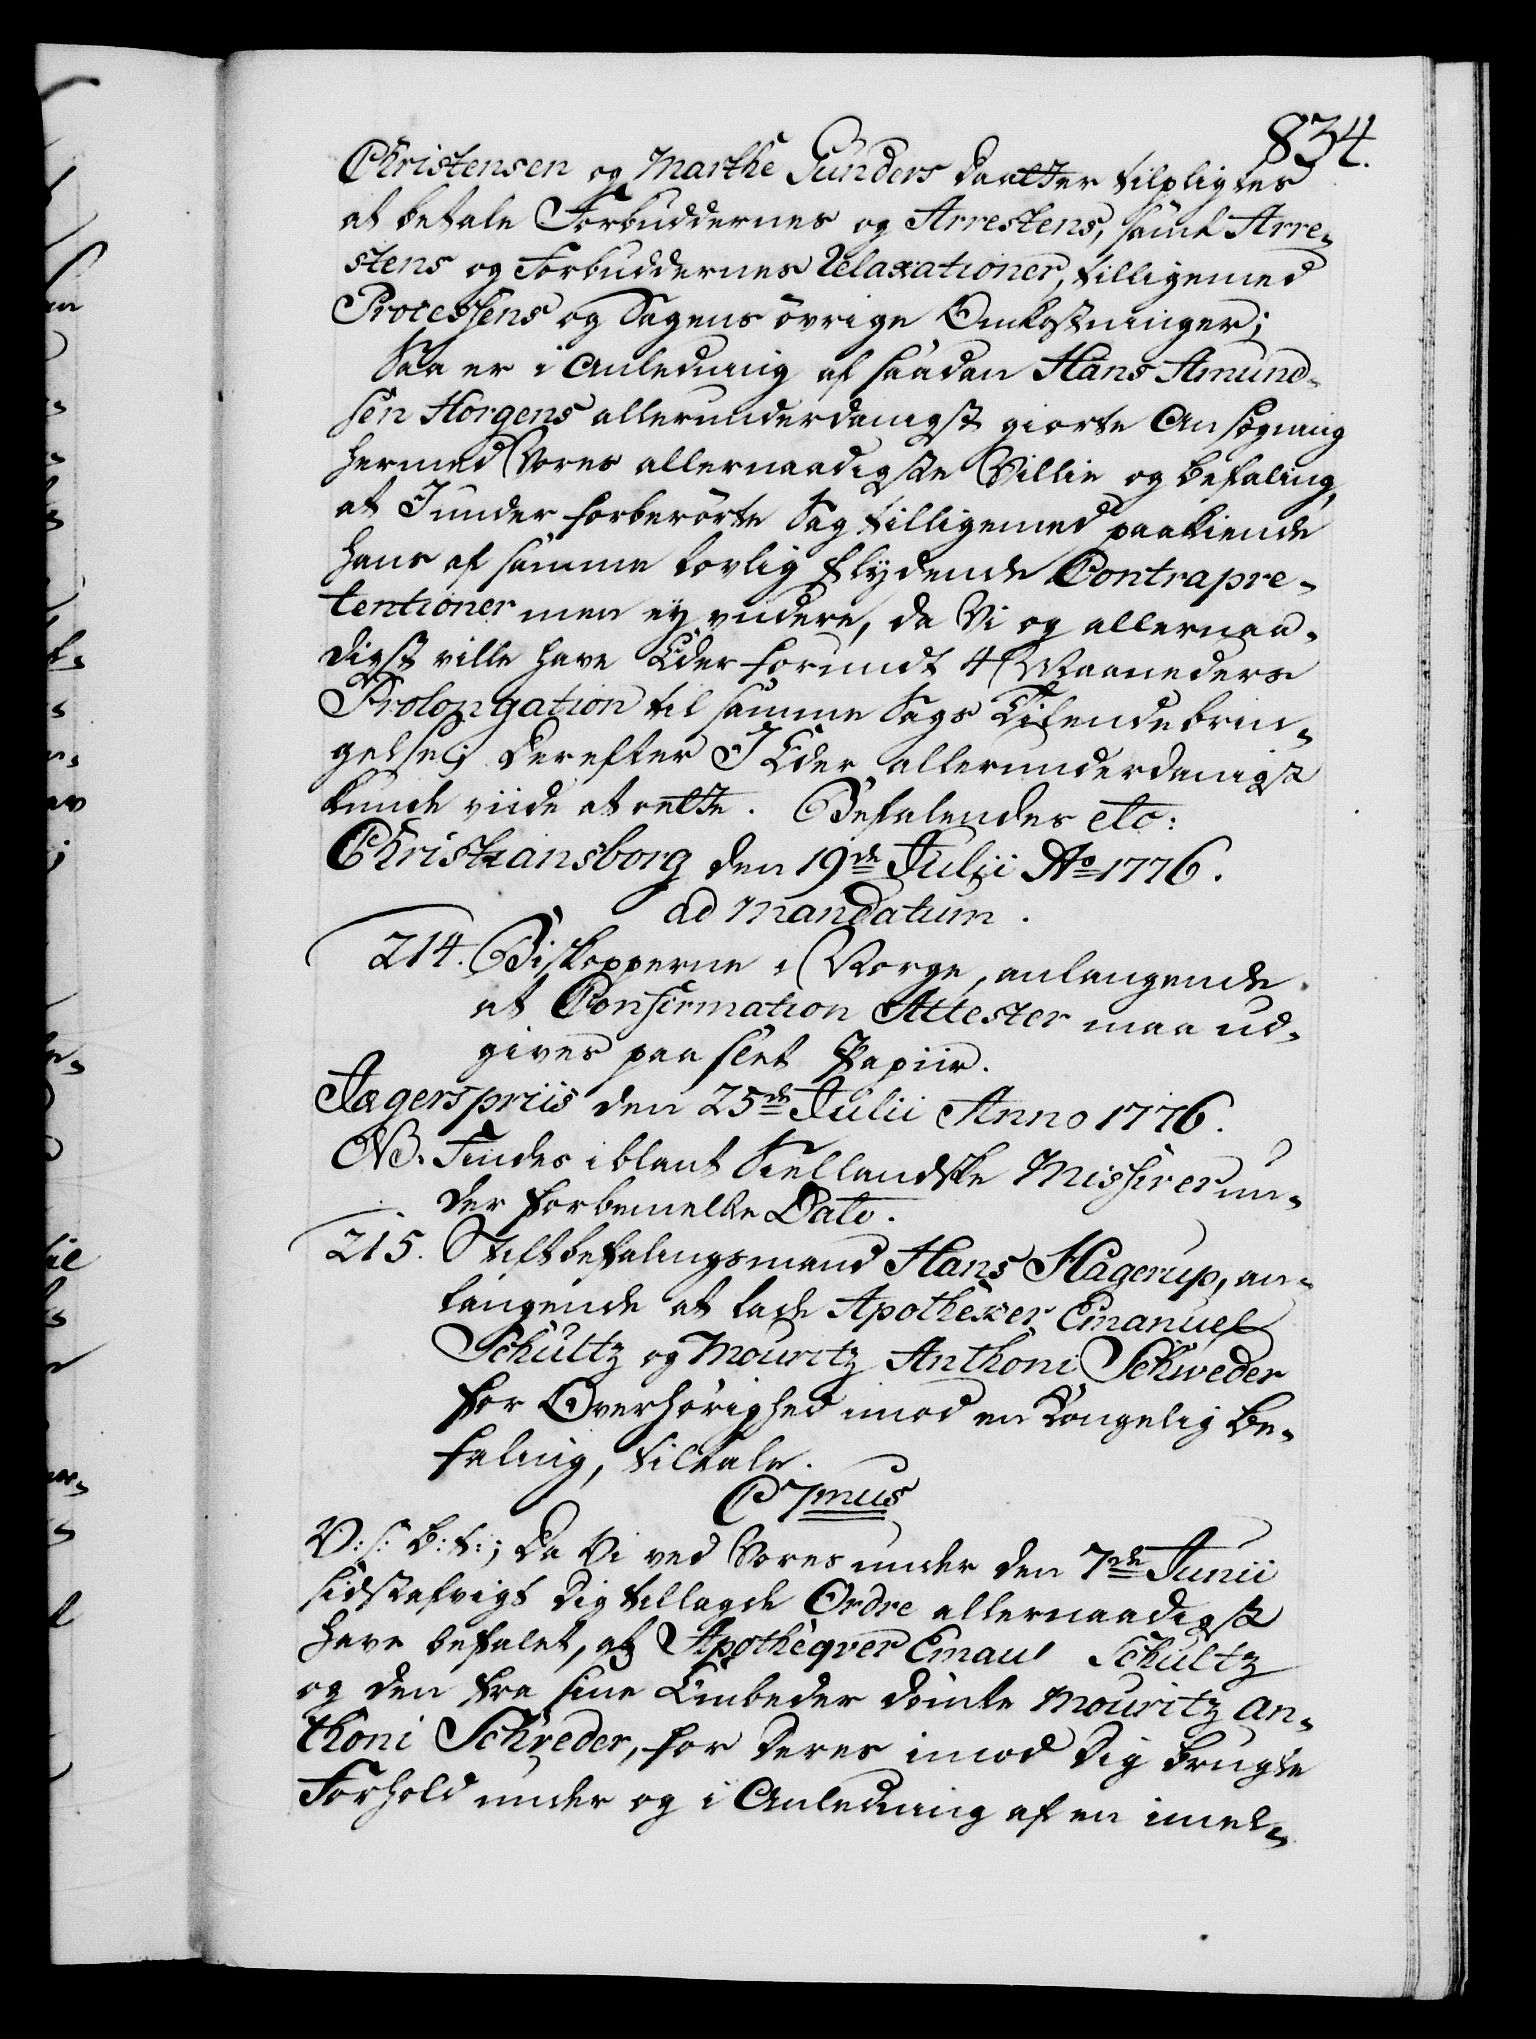 834.
Christensen og Marthe Gunders daatter tilpligtes
at betale Forbuddernes og Arrestens, samt Arre-
stens og Forbuddernes Relaxationer, tilligemed
Processens og Sagens övrige Omkostninger;
Saa er i Anledning af saadan Hans Amund-
sen Horgens allerunderdanigst giorte Ansögning
hermed Vores allernaadigste Villie og befaling,
at I under forberörte Sag tilligemed paakiende
hans af samme lovlig flydende Contrapre-
tentioner men ey videre, da Vi og allernaa-
digst ville have Eder forundt 4 Maaneders
Prolongation til samme Sags Tilendebrin-
gelse; Derefter I Eder allerunderdanigst
kunde viide at rette. Befalendes etc:
Christiansborg den 19de Julii Ao 1776.
ad mandatum.
214. Biskopperne i Norge, anlangende
at Confirmation Attester maa ud-
gives paa slet Papiir.
Jægerspriis den 25de Julii Anno 1776.
NB. Findes iblant Siellandske Missiver un-
der forbemelte Dato.
215. Stiftbefalingsmand Hans Hagerup, an-
langende at lade Apotheker Emanuel
Schultz og Mouritz Anthoni Schweder
for Overhörighed imod en Kongelig Be-
faling, tiltale.
C 7mus
V: s: b: t:; Da Vi ved Vores under den 7de Junii
sidstafvigt Dig tillagde Ordre allernaadigst
have befalet, at Apotheqver Emanl Schultz
og den fra sine Embeder dömte Mouritz An-
thoni Schreder, for deres imod Dig brugte
Forhold under og i Anledning af en imel-